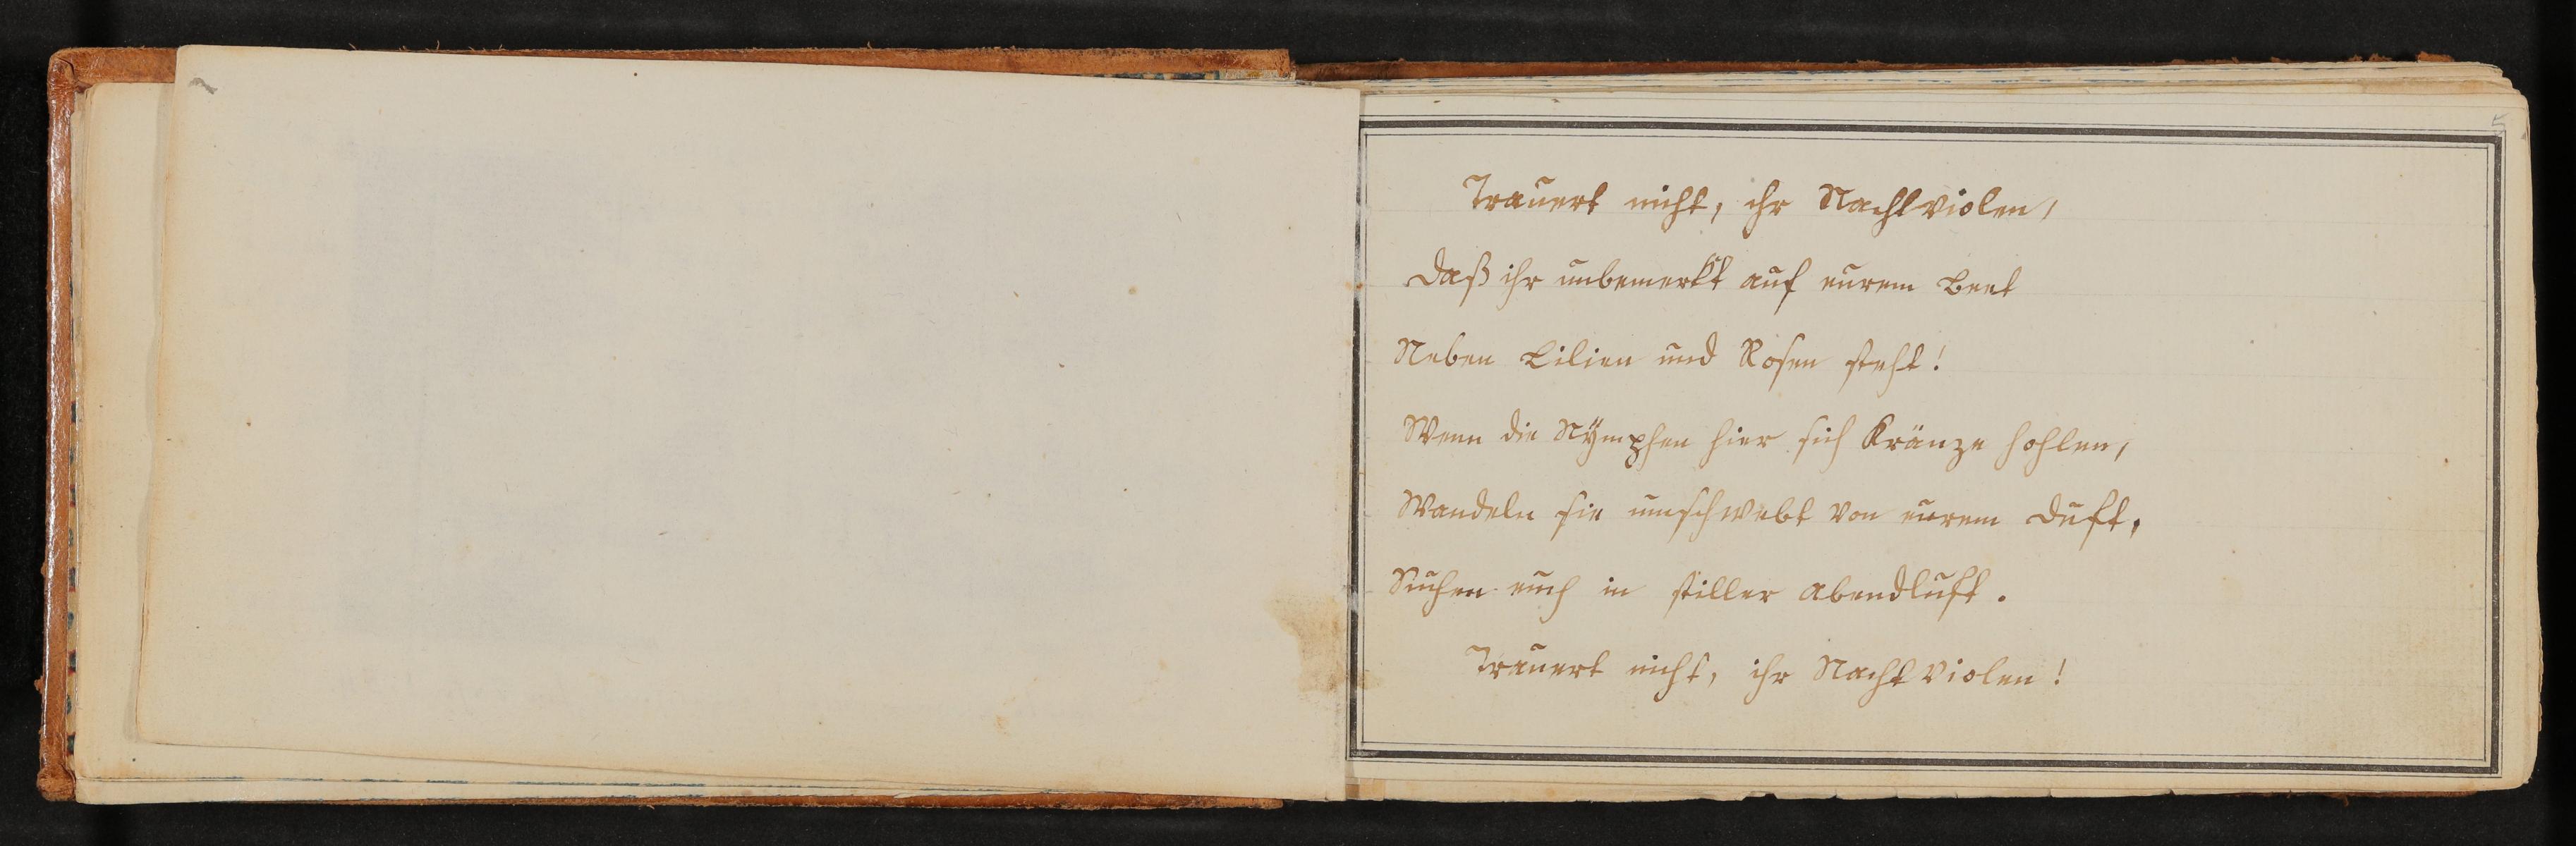 5
Trauert nicht, ihr Nachtviolen,
Daß ihr unbemerkt auf eurem Beet
Neben Lilien und Rosen steht!
Wenn die Nÿmphen hier sich Kränze hohlen,
Wandeln sie umschwebt von eurem Duft,
Suchen euch in stiller Abendluft.
Trauert nicht, ihr Nachtviolen!